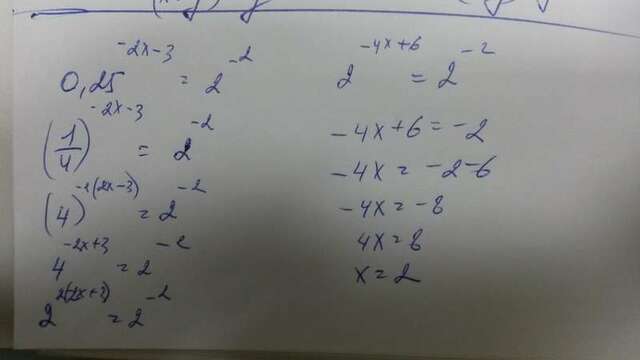 0,25^(-2x-3) = 2^(-2)
(1/4)^(-2x-3) = 2^(-2)
(4)^(-1(2x-3)) = 2^(-2)
4^(-2x+3) = 2^(-2)
2^(2(-2x+3)) = 2^(-2)
2^(-4x+6) = 2^(-2)
-4x+6=-2
-4x = -2-6
-4x = -8
4x=8
x=2